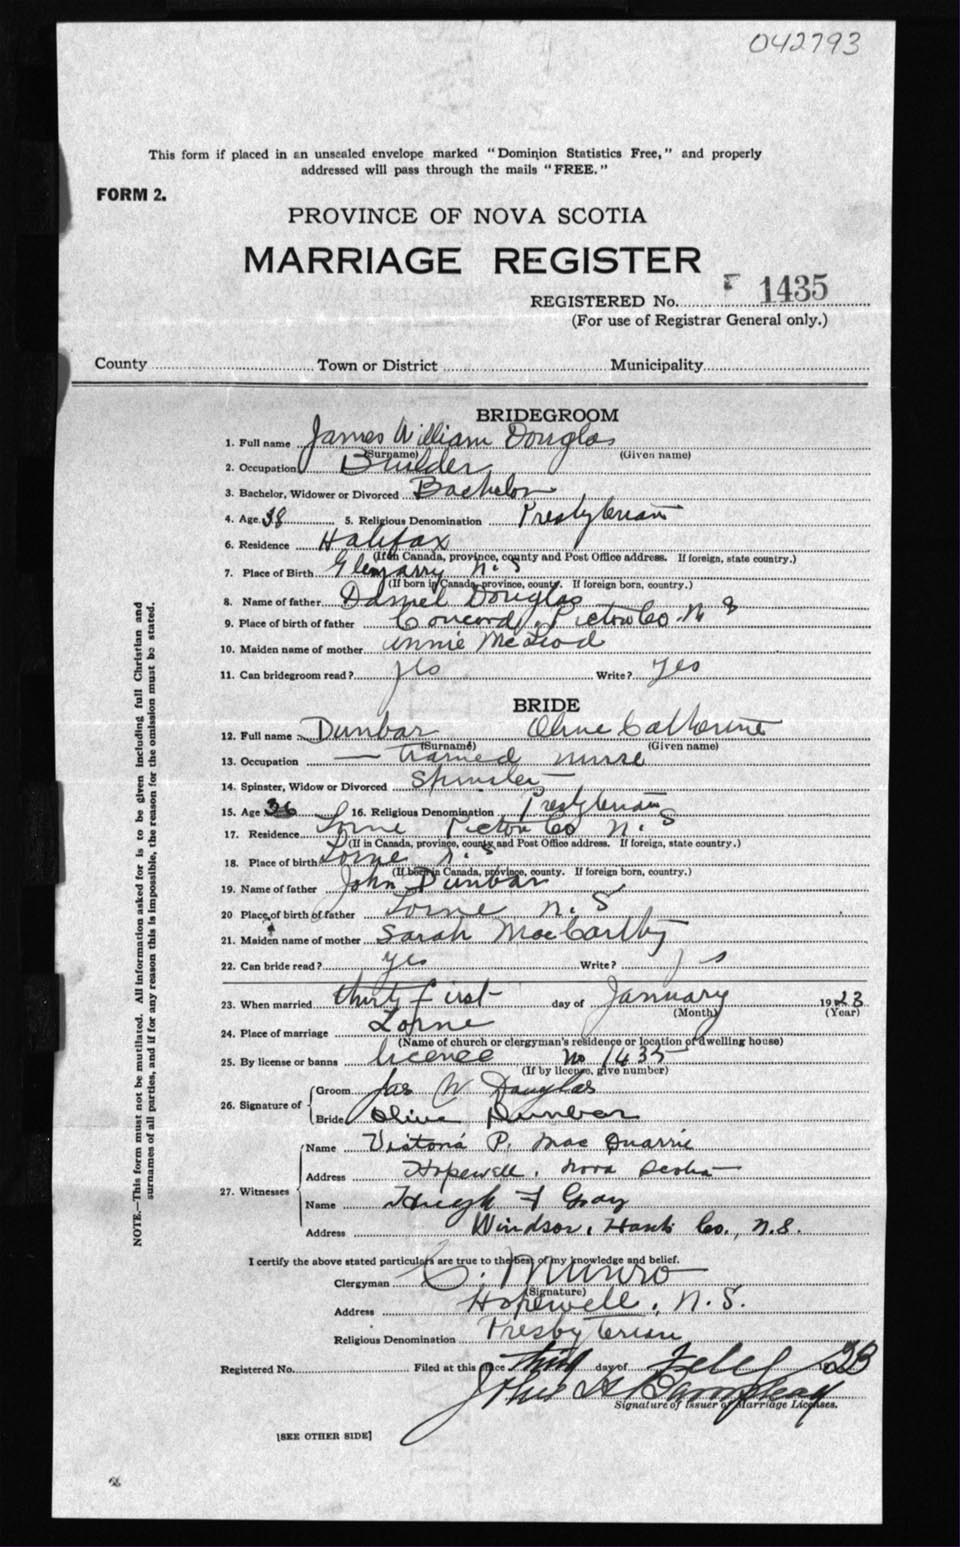 042793
This form if placed in an unsealed envelope marked "Dominion Statistics Free," and properly
addressed will pass through the mails "FREE."
FORM 2.
PROVINCE OF NOVA SCOTIA
MARRIAGE REGISTER
REGISTERED No. F 1435
(For use of Registrar General only.)
County Town or District Municipality
BRIDEGROOM
1. Full name James William Douglas
(Surname) (Given name)
2. Occupation Builder
3. Bachelor, Widower or Divorced Bachelor
4. Age 38 5. Religious Denomination Presbyterian
6. Residence Halifax
(If in Canada, province, county and Post Office address. If foreign, state country.)
7. Place of Birth Glengarry N. S
(If born in Canada, province, county. If foreign born, country.)
8. Name of father Daniel Douglas
9. Place of birth of father Concord, Pictou Co. N S
10. Maiden name of mother Annie McLeod
11. Can bridegroom read? yes Write? yes
BRIDE
12. Full name Dunbar Olive Catherine
(Surname) (Given name)
13. Occupation — trained nurse
14. Spinster, Widow or Divorced Spinster
15. Age 36 16. Religious Denomination Presbyterian
17. Residence Lorne Pictou Co N. S
(If in Canada, province, county and Post Office address. If foreign, state country.)
18. Place of birth Lorne N. S
(If born in Canada, province, county. If foreign born, country.)
19. Name of father John Dunbar
20 Place of birth of father Lorne N. S
21. Maiden name of mother Sarah MacCarthy
22. Can bride read? yes Write? yes
23. When married thirty first day of January 1923
(Month) (Year)
24. Place of marriage Lorne
(Name of church or clergyman's residence or location of dwelling house)
25. By license or banns licence No 1435
(If by license, give number)
26. Signature of
Groom Jas W Douglas
Bride Olive Dunbar
27. Witnesses
Name Victoria P. MacQuarrie
Address Hopewell, Nova Scotia
Name Hugh F Gray
Address Windsor, Hants Co., N.S.
I certify the above stated particulars are true to the best of my knowledge and belief.
Clergyman C. Munro
(Signature)
Address Hopewell, N.S.
Religious Denomination Presbyterian
Registered No. Filed at this place third day of Feby 1923
Signature of Issuer of Marriage Licenses.
[SEE OTHER SIDE]
NOTE.—This form must not be mutilated. All information asked for is to be given including full Christian and
surnames of all parties, and if for any reason this is impossible, the reason for the omission must be stated.